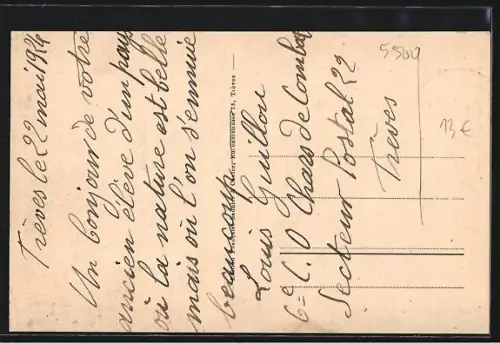 Trèves le 22 mai 1924
Un bonjour de votre
ancien élève d'un pays
où la nature est belle
mais où l'on s'ennuie
beaucoup
Louis Guillou
6e C.O Chars de Combat
Secteur Postal 22
Trèves
5500
13 €